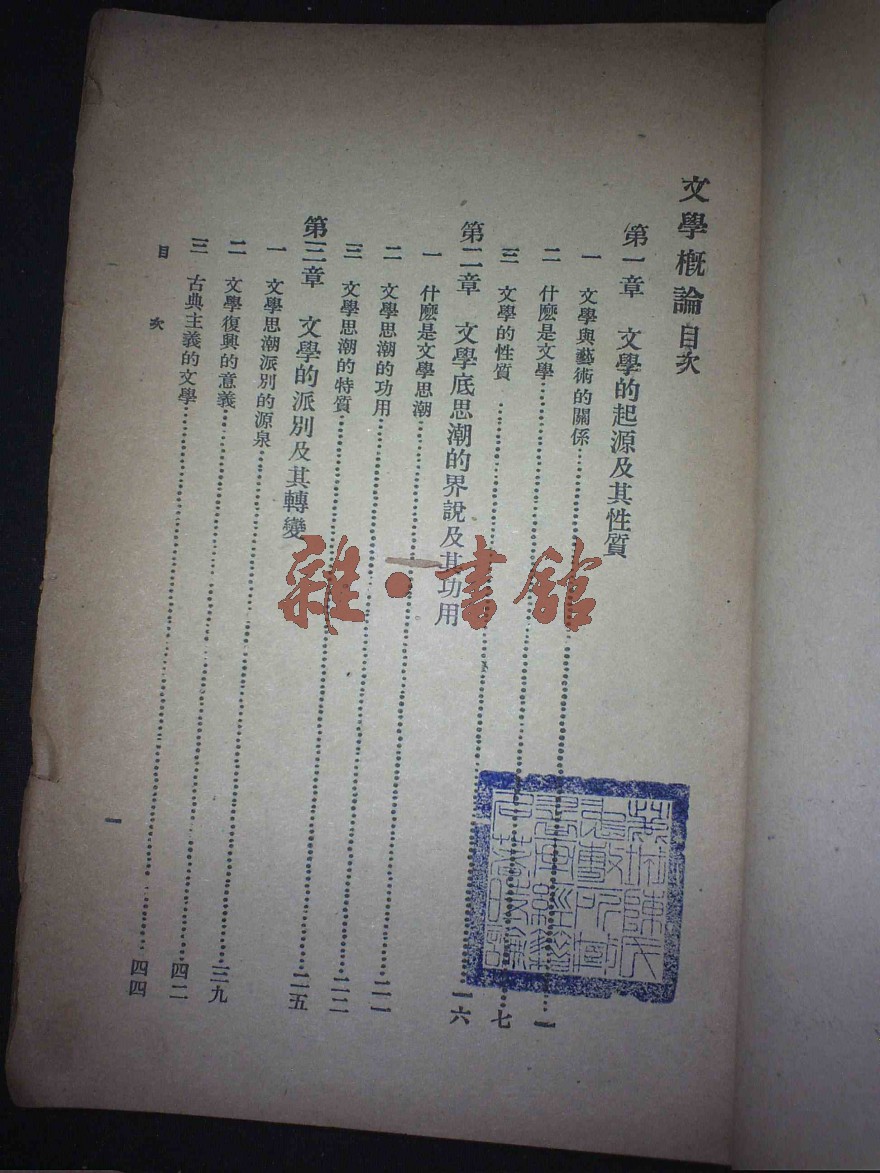 文學概論目次
第一章　文學的起源及其性質
一　文學與藝術的關係……一
二　什麼是文學……七
三　文學的性質……一六
第二章　文學底思潮的界說及其功用
一　什麼是文學思潮……二一
二　文學思潮的功用……二二
三　文學思潮的特質……二五
第三章　文學的派別及其轉變
一　文學思潮派別的源泉……三九
二　文學復興的意義……四二
三　古典主義的文學……四四
目次
一
雜·書館